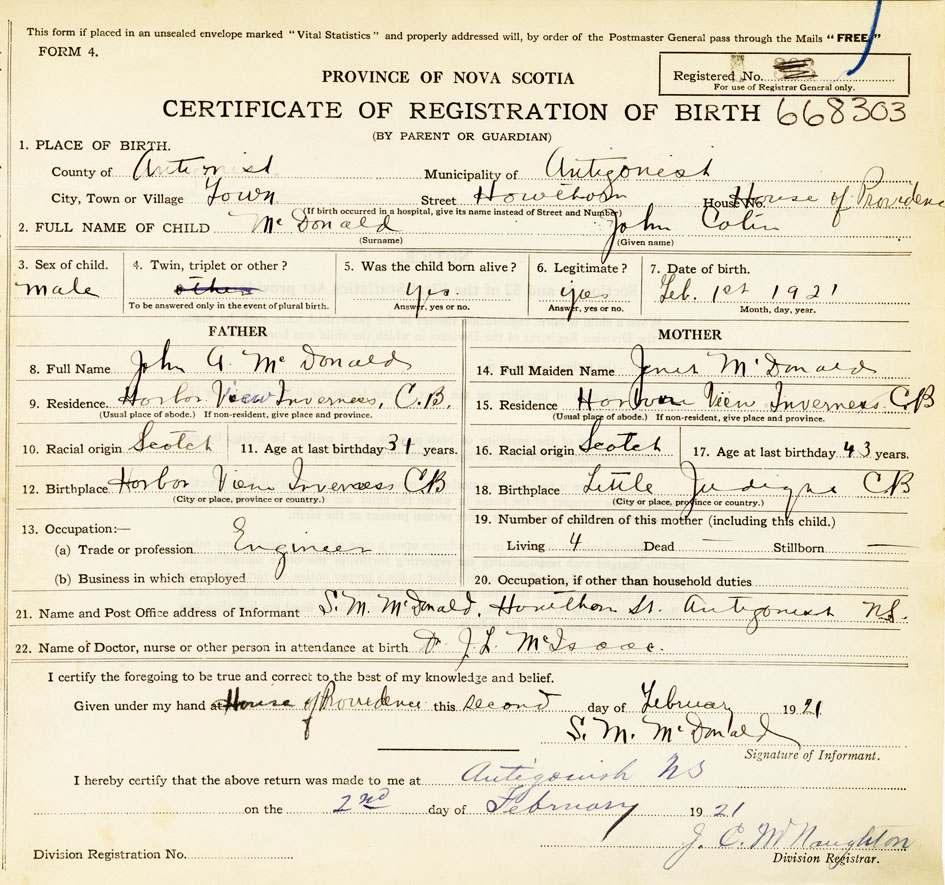 This form if placed in an unsealed envelope marked "Vital Statistics" and properly addressed will, by order of the Postmaster General pass through the Mails "FREE."
FORM 4.
Registered No.
For use of Registrar General only.
PROVINCE OF NOVA SCOTIA
CERTIFICATE OF REGISTRATION OF BIRTH 668303
(BY PARENT OR GUARDIAN)
1. PLACE OF BIRTH.
County of Municipality of Antigonish
City, Town or Village Town Street House No. House of Providence
(If birth occurred in a hospital, give its name instead of Street and Number)
2. FULL NAME OF CHILD McDonald John Colin
(Surname) (Given name)
3. Sex of child. 4. Twin, triplet or other? 5. Was the child born alive? 6. Legitimate? 7. Date of birth.
male other yes yes Feb. 1st 1921
To be answered only in the event of plural birth. Answer, yes or no. Answer, yes or no. Month, day, year.
FATHER MOTHER
8. Full Name John A. McDonald 14. Full Maiden Name McDonald
9. Residence Harbor View Inverness, C.B. 15. Residence View Inverness CB
(Usual place of abode.) If non-resident, give place and province. (Usual place of abode.) If non-resident, give place and province.
10. Racial origin Scotch 11. Age at last birthday 31 years. 16. Racial origin Scotch 17. Age at last birthday 43 years.
12. Birthplace Harbor View Inverness CB 18. Birthplace Little Judique CB
(City or place, province or country.) (City or place, province or country.)
13. Occupation:— 19. Number of children of this mother (including this child.)
(a) Trade or profession Engineer Living 4 Dead — Stillborn —
(b) Business in which employed 20. Occupation, if other than household duties
21. Name and Post Office address of Informant S. M. McDonald, St. Antigonish N.S.
22. Name of Doctor, nurse or other person in attendance at birth Dr J. L. McIsaac.
I certify the foregoing to be true and correct to the best of my knowledge and belief.
Given under my hand at House of Providence this second day of February 1921
S. M. McDonald
Signature of Informant.
I hereby certify that the above return was made to me at Antigonish NS
on the 2nd day of February 1921
J. C. McNaughton
Division Registration No. Division Registrar.